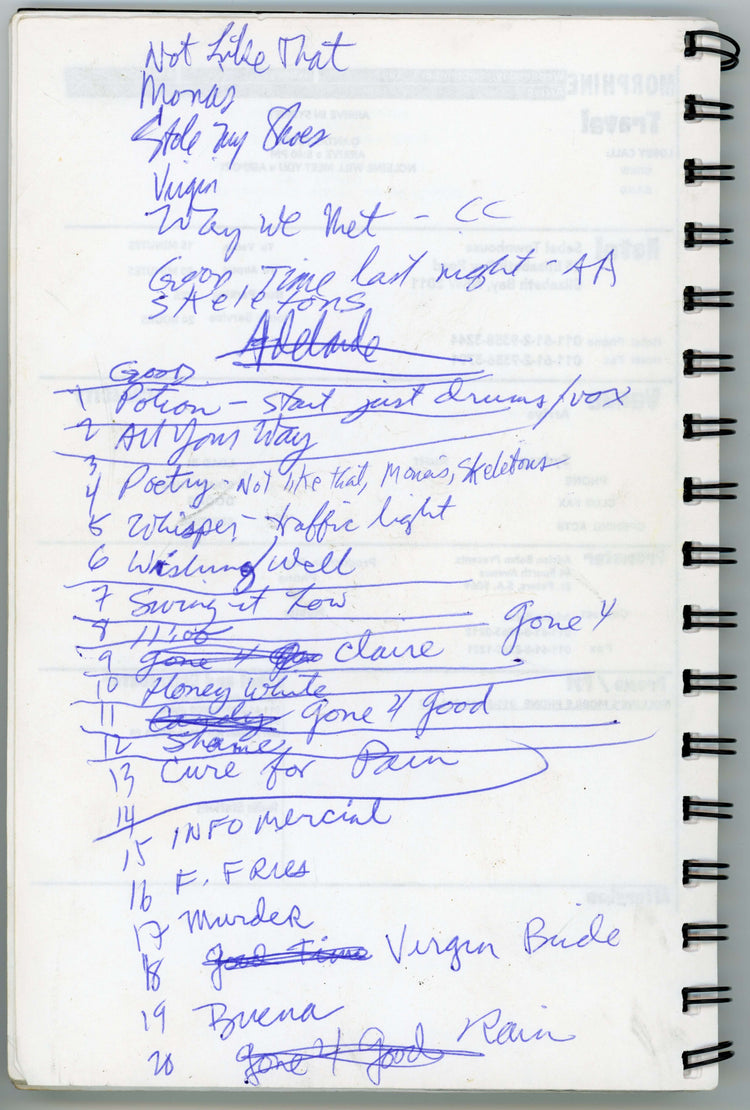 Not Like That
Monas
Stole my Shoes
Virgin
Way we Met - CC
Good Time last night - AA
Skeletons
Adelaide
GOOD
1 Potion - start just drums/vox
2 All Your Way
3
4 Poetry - Not like that, Mona's, Skeletons
5 Whisper - traffic light
6 Wishing Well
7 Swing it Low
8 11:00
9 gone 4 Claire gone 4
10 Honey White
11 Candy Gone 4 Good
12 Shames
13 Cure for Pain
14
15 INFOmercial
16 F. FRIES
17 MURDER
18 Good Time Virgin Bride
19 Buena
20 gone 4 Good Rain